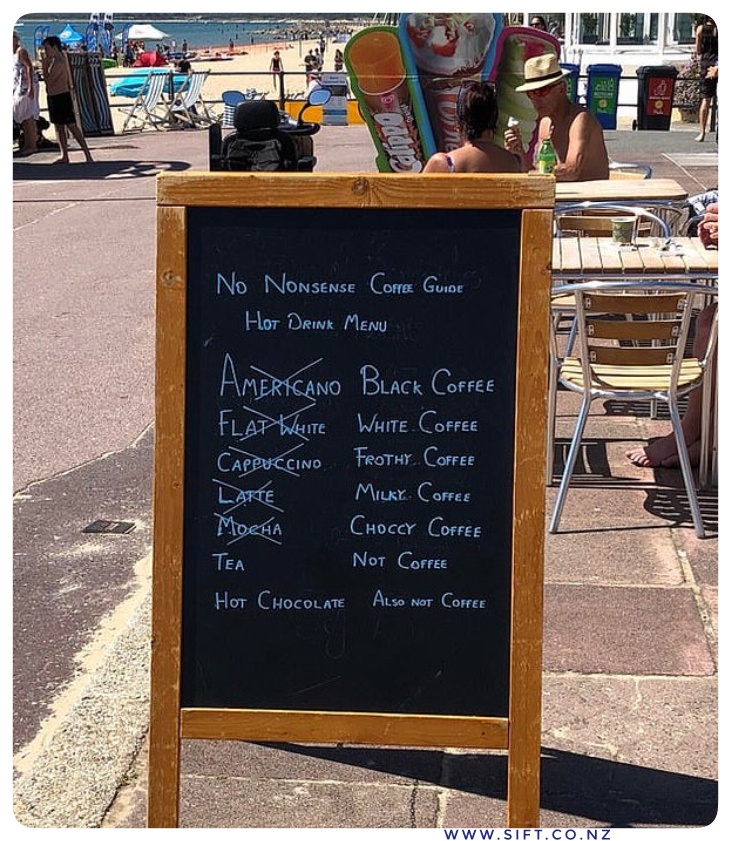 No Nonsense Coffee Guide
Hot Drink Menu
Americano Black Coffee
Flat White White Coffee
Cappuccino Frothy Coffee
Latte Milky Coffee
Mocha Choccy Coffee
Tea Not Coffee
Hot Chocolate Also not Coffee
WWW.SIFT.CO.NZ